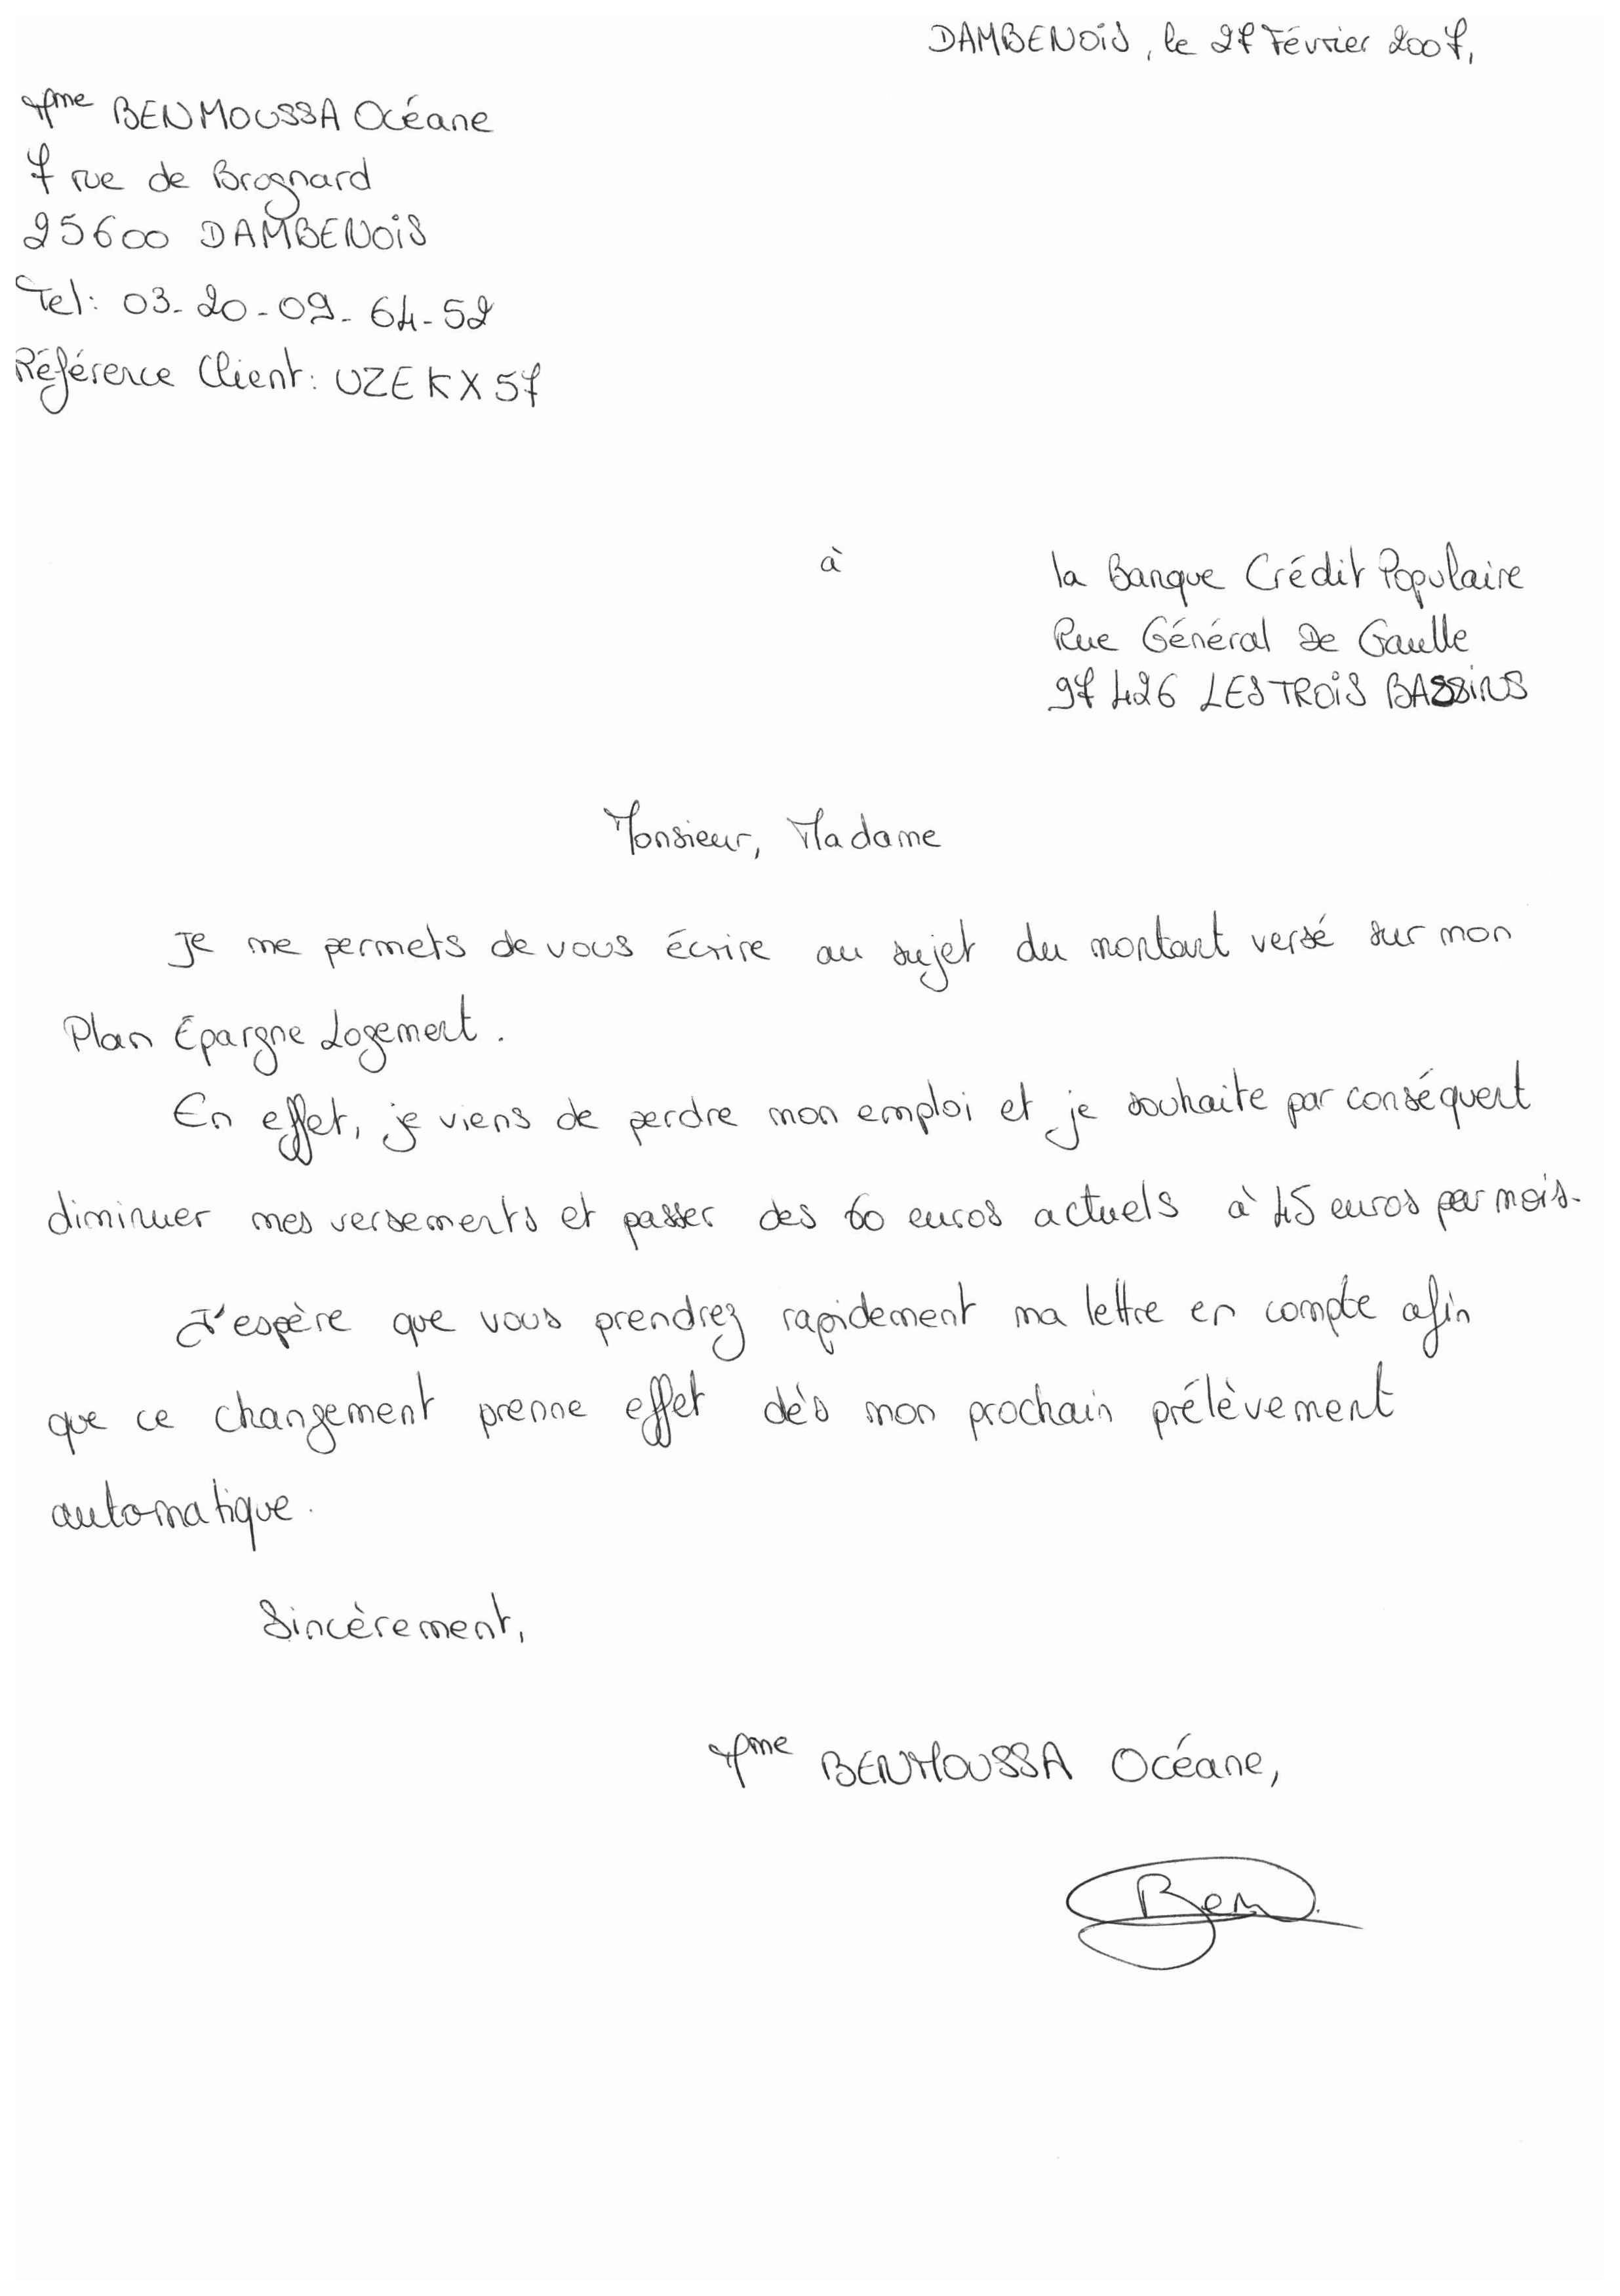 DAMBENOIS, le 27 Février 2007,
Mme BENMOUSSA Océane
7 rue de Brognard
25600 DAMBENOIS
Tel: 03-20-09-64-52
Référence Client: UZEKX57
à
la Banque Crédit Populaire
Rue Général De Gaulle
97426 LES TROIS BASSINS
Monsieur, Madame
Je me permets de vous écrire au sujet du montant versé sur mon
Plan Épargne Logement.
En effet, je viens de perdre mon emploi et je souhaite par conséquent
diminuer mes versements et passer des 60 euros actuels à 45 euros par mois.
J'espère que vous prendrez rapidement ma lettre en compte afin
que ce changement prenne effet dès mon prochain prélèvement
automatique.
Sincèrement,
Mme BENMOUSSA Océane,
Ben